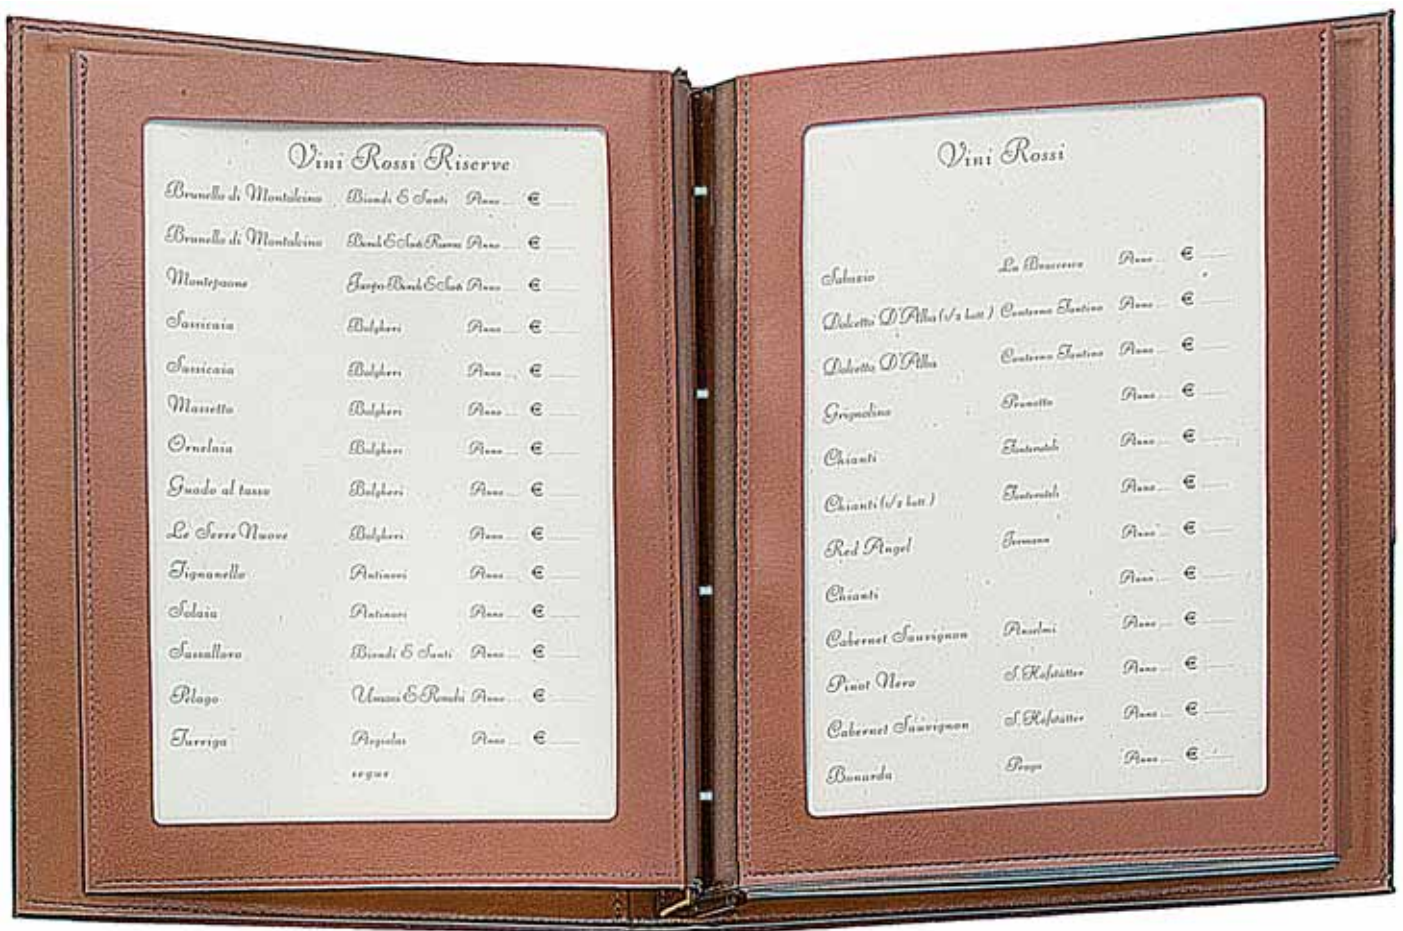 Vini Rossi Riserve
Brunello di Montalcino Biondi & Santi Anno ... € ......
Brunello di Montalcino Biondi & Santi Riserva Anno ... € ......
Montepaone Jacopo Biondi & Santi Anno ... € ......
Sassicaia Bolgheri Anno ... € ......
Sassicaia Bolgheri Anno ... € ......
Massetto Bolgheri Anno ... € ......
Ornelaia Bolgheri Anno ... € ......
Guado al tasso Bolgheri Anno ... € ......
Le Serre Nuove Bolgheri Anno ... € ......
Tignanello Antinori Anno ... € ......
Solaia Antinori Anno ... € ......
Sassalloro Biondi & Santi Anno ... € ......
Pelago Umani & Ronchi Anno ... € ......
Turriga Argiolas Anno ... € ......
segue
Vini Rossi
Sabazio La Braccesca Anno ... € ......
Dolcetto D'Alba (1/2 bott.) Conterno Fantino Anno ... € ......
Dolcetto D'Alba Conterno Fantino Anno ... € ......
Grignolino Prunotto Anno ... € ......
Chianti Fonterutoli Anno ... € ......
Chianti (1/2 bott.) Fonterutoli Anno ... € ......
Red Angel Jermann Anno ... € ......
Chianti Anno ... € ......
Cabernet Sauvignon Anselmi Anno ... € ......
Pinot Nero S. Hofstatter Anno ... € ......
Cabernet Sauvignon S. Hofstatter Anno ... € ......
Bonarda Anno ... € ......